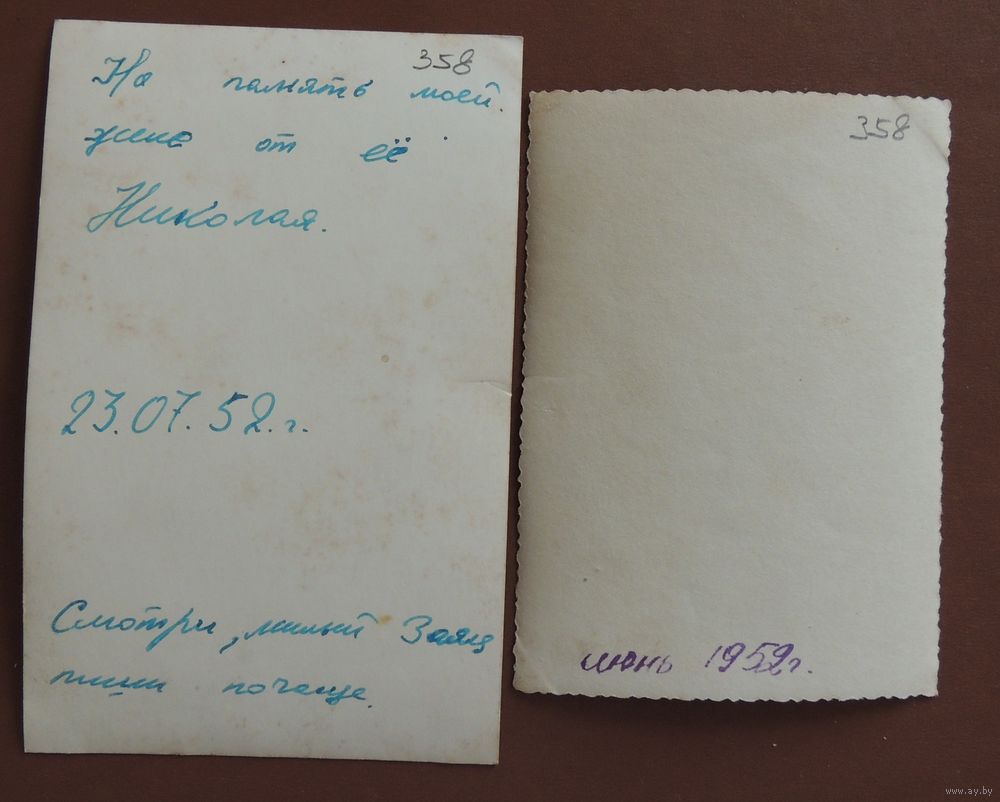 358
На память моей
жене от её
Николая.
23.07.52.г.
Смотри, милый Заяц
пиши почаще.
358
июнь 1952г.
www.ay.by